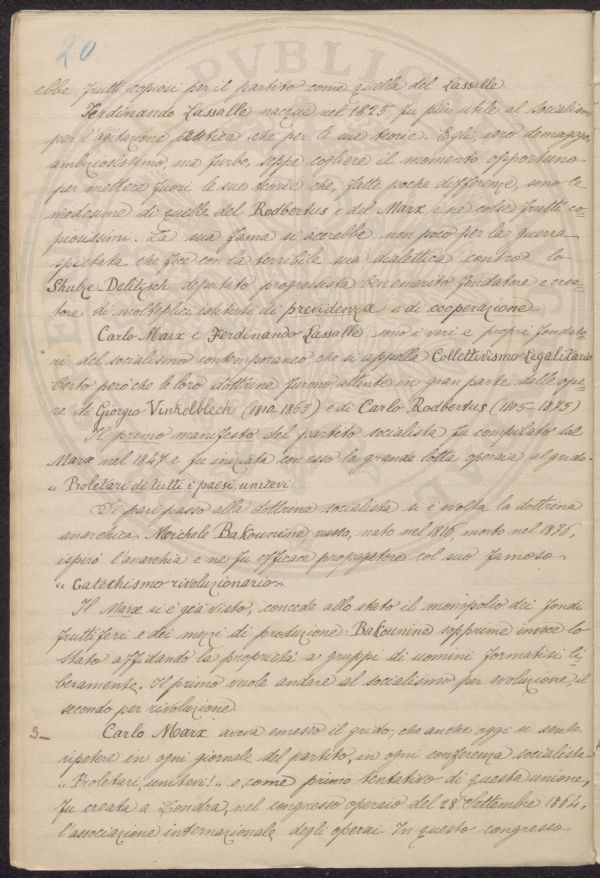 20
ebbe frutti copiosi per il partito come quella del Lassalle.
Ferdinando Lassalle nacque nel 1825 fu più utile al socialismo
per l'agitazione pratica che per le sue teorie. Egli, vero demagogo,
ambiziosissimo, ma furbo, seppe cogliere il momento opportuno
per mettere fuori le sue teorie che, fatte poche differenze, sono le
medesime di quelle del Rodbertus e del Marx e ne colse frutti co-
piosissimi. La sua fama si acerebbe non poco per la guerra
spietata che fece con la terribile sua dialettica contro lo
Shulze-Delitzsch deputato progressista benemerito fondatore e crea-
tore di molteplici istituti di previdenza e di cooperazione
Carlo Marx e Ferdinando Lassalle sono i veri e propri fondato-
ri del socialismo contemporaneo che si appella Collettivismo Legalitario
Certo però che le loro dottrine furono attinte in gran parte dalle ope-
re di Giorgio Vinkelblech (1810-1865) e di Carlo Rodbertus (1805-1875)
Il primo manifesto del partito socialista fu compilato dal
Marx nel 1847 e fu iniziata con esso la grande lotta operaia al grido
"Proletari di tutti i paesi unitevi
Di pari passo alla dottrina socialista si è svolta la dottrina
anarchica. Michele Bakounine russo, nato nel 1816, morto nel 1876,
ispirò l'anarchia e ne fu efficace propagatore col suo famoso
"Catechismo rivoluzionario"
Il Marx si è già visto, concede allo stato il monopolio dei fondi
fruttiferi e dei mezzi di produzione: Bakounine sopprime invece lo
Stato affidando la proprietà a gruppi di uomini formatisi li-
beramente. Il primo vuole andare al socialismo per evoluzione, il
secondo per rivoluzione.
3- Carlo Marx aveva emesso il grido, che anche oggi si sente
ripetere in ogni giornale del partito, in ogni conferenza socialista
"Proletari, unitevi!" e, come primo tentativo di questa unione,
fu creata a Londra, nel congresso operaio del 28 Settembre 1864,
l'associazione internazionale degli operai. In questo congresso